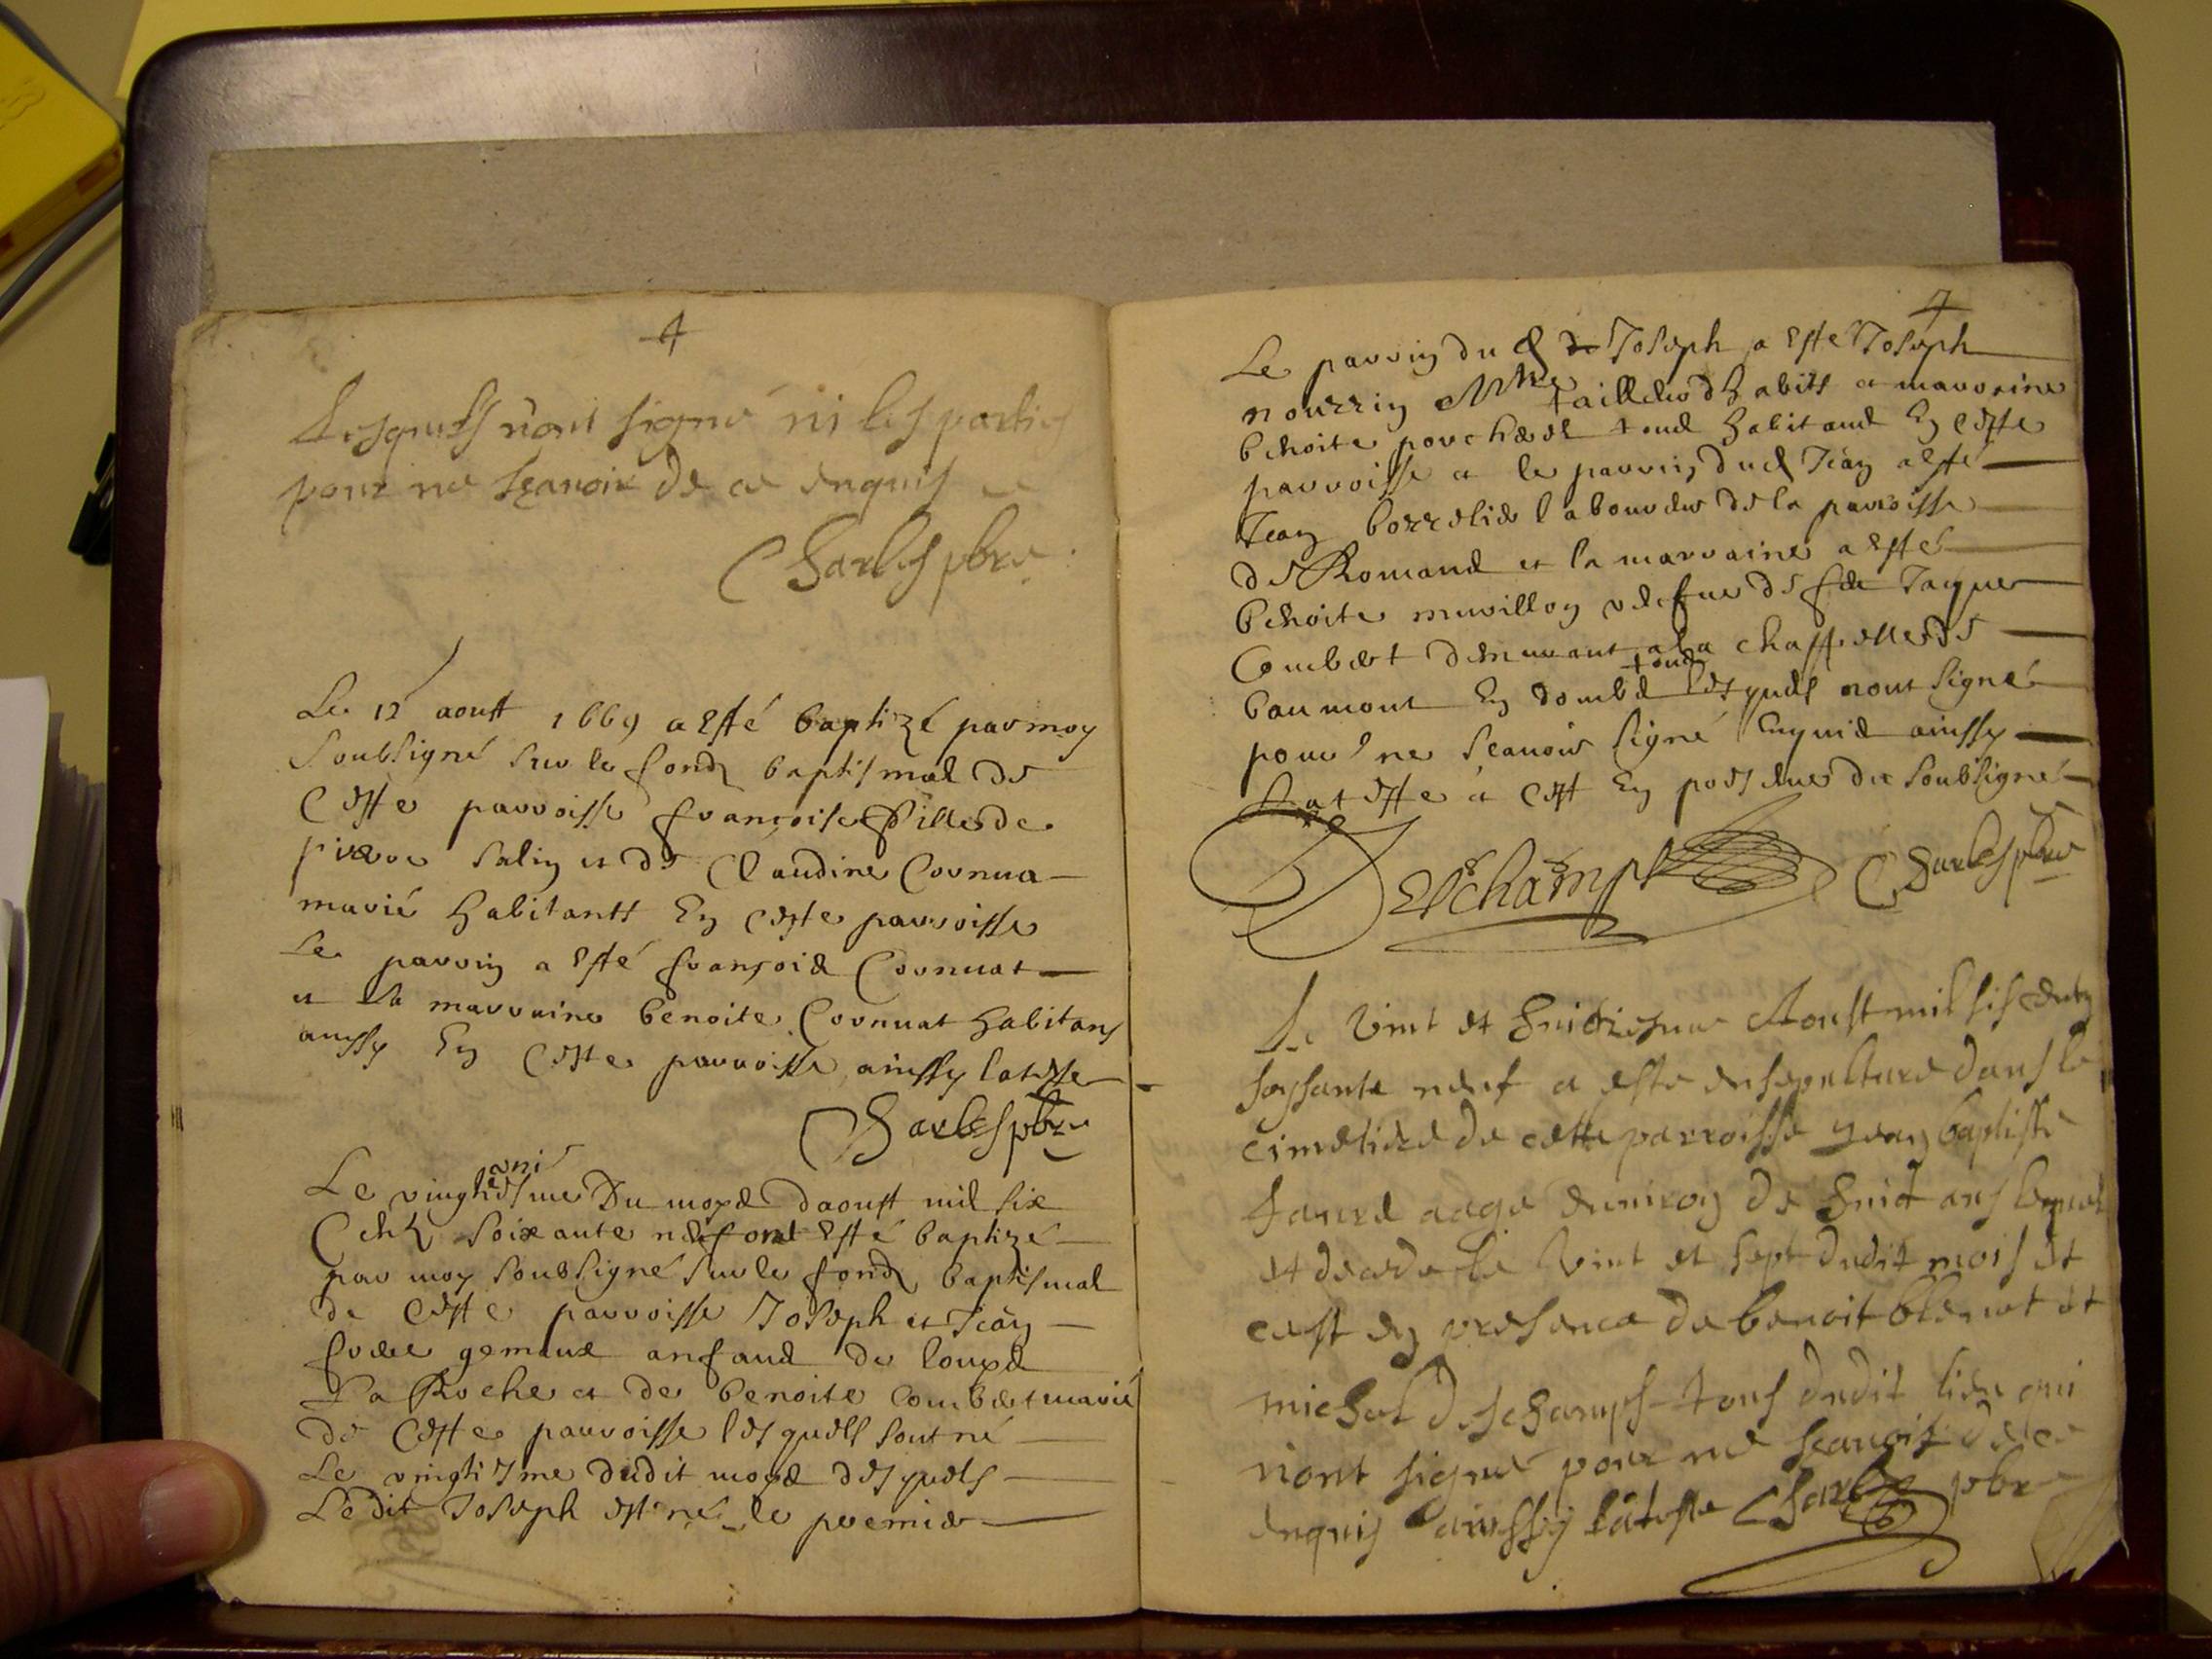 Lesquels n'ont signé ni les parties
pour ne sçavoir de ce enquis
Charles pbre
Le 12 aoust 1669 a esté baptizé par moy
soubsigné sur le fondz baptismal de
Ceste parroisse françoise fille de
pierre salin et de Claudine Cornua
marié habitantt En ceste parroisse
Le parrin a esté françoid Cornuat
et la marraine benoite Cornuat habitans
aussy En Ceste parroisse ainssy lateste
Charles pbre
Le vinghuniesme Du moyd daoust mil six
Centz soixante neuf ont Esté baptizé
par moy soubsigné sur le fondz baptismal
de Ceste parroisse Joseph et Jean
frere gemeux anfand de louyd
La Roche et de benoite Combet marié
de Ceste parroisse lesquells sont né
Le vingtisme dudit moyd desquels
Ledit Joseph est né le premier
Le parrin du d Joseph a esté Joseph
nourrin Mtre tailleur dhabitt et marraine
benoite porchered toud habitand En ceste
parroisse et le parrin dud Jean a esté
Jean borrelier laboureur de la parroisse
de Romand et la marraine a esté
benoite murillon vefue de feu Jaque
Combet demurant a la chappelle de
baumont En dombe toud lesquels nont signé
pour ne sçauoir signé Enquid ainssy
lateste a cest En presence du soubsigné
Deschamps Charles pbre
Le vint et huictiesme Aoust mil sis centz
soissante neuf a esté ensepulturé dans le
cimetiere de cette parroisse jean baptiste
faure aage denviron de huict ans lequel
et decede le vint et sept dudit mois et
cest en presence de benoit et
michel deschamps tous dudit lieu qui
n'ont signé pour ne sçavoir de ce
enquis ainssy lateste Charles pbre